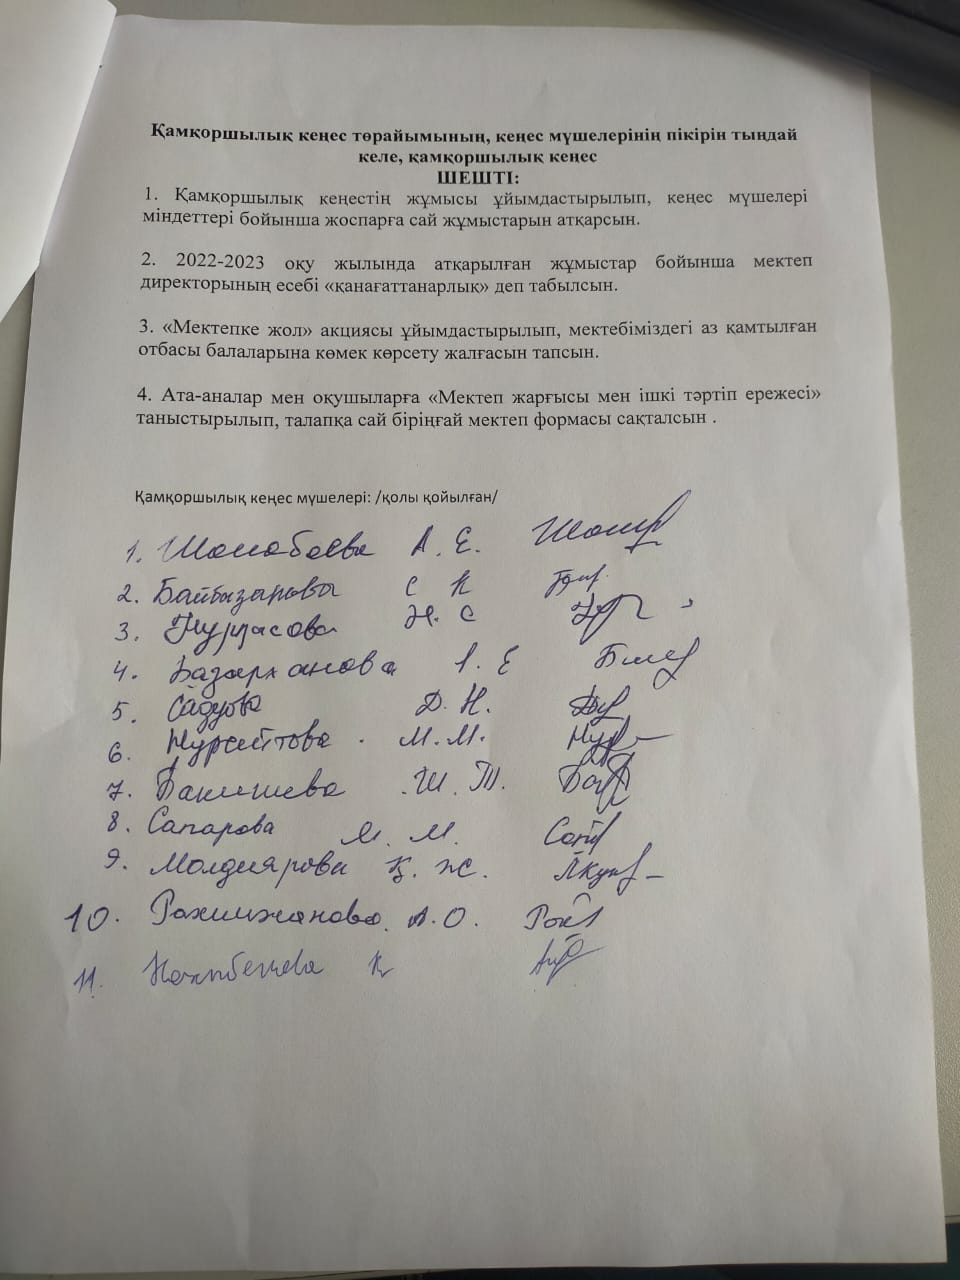 Қамқоршылық кеңес төрайымының, кеңес мүшелерінің пікірін тыңдай
келе, қамқоршылық кеңес
ШЕШТІ:
1. Қамқоршылық кеңестің жұмысы ұйымдастырылып, кеңес мүшелері
міндеттері бойынша жоспарға сай жұмыстарын атқарсын.
2. 2022-2023 оқу жылында атқарылған жұмыстар бойынша мектеп
директорының есебі «қанағаттанарлық» деп табылсын.
3. «Мектепке жол» акциясы ұйымдастырылып, мектебіміздегі аз қамтылған
отбасы балаларына көмек көрсету жалғасын тапсын.
4. Ата-аналар мен оқушыларға «Мектеп жарғысы мен ішкі тәртіп ережесі»
таныстырылып, талапқа сай біріңғай мектеп формасы сақталсын .
Қамқоршылық кеңес мүшелері: /қолы қойылған/
1. А. Е.
2. С К
3. Н. С
4. Базарханова
5. Садуова Д. Н.
6. Нурсейтова М. М.
7. Бакишева Ш. Т.
8. Сапарова М. М.
9. Молдиярова Қ. Ж.
10. Рахимжанова А. О.
11. К